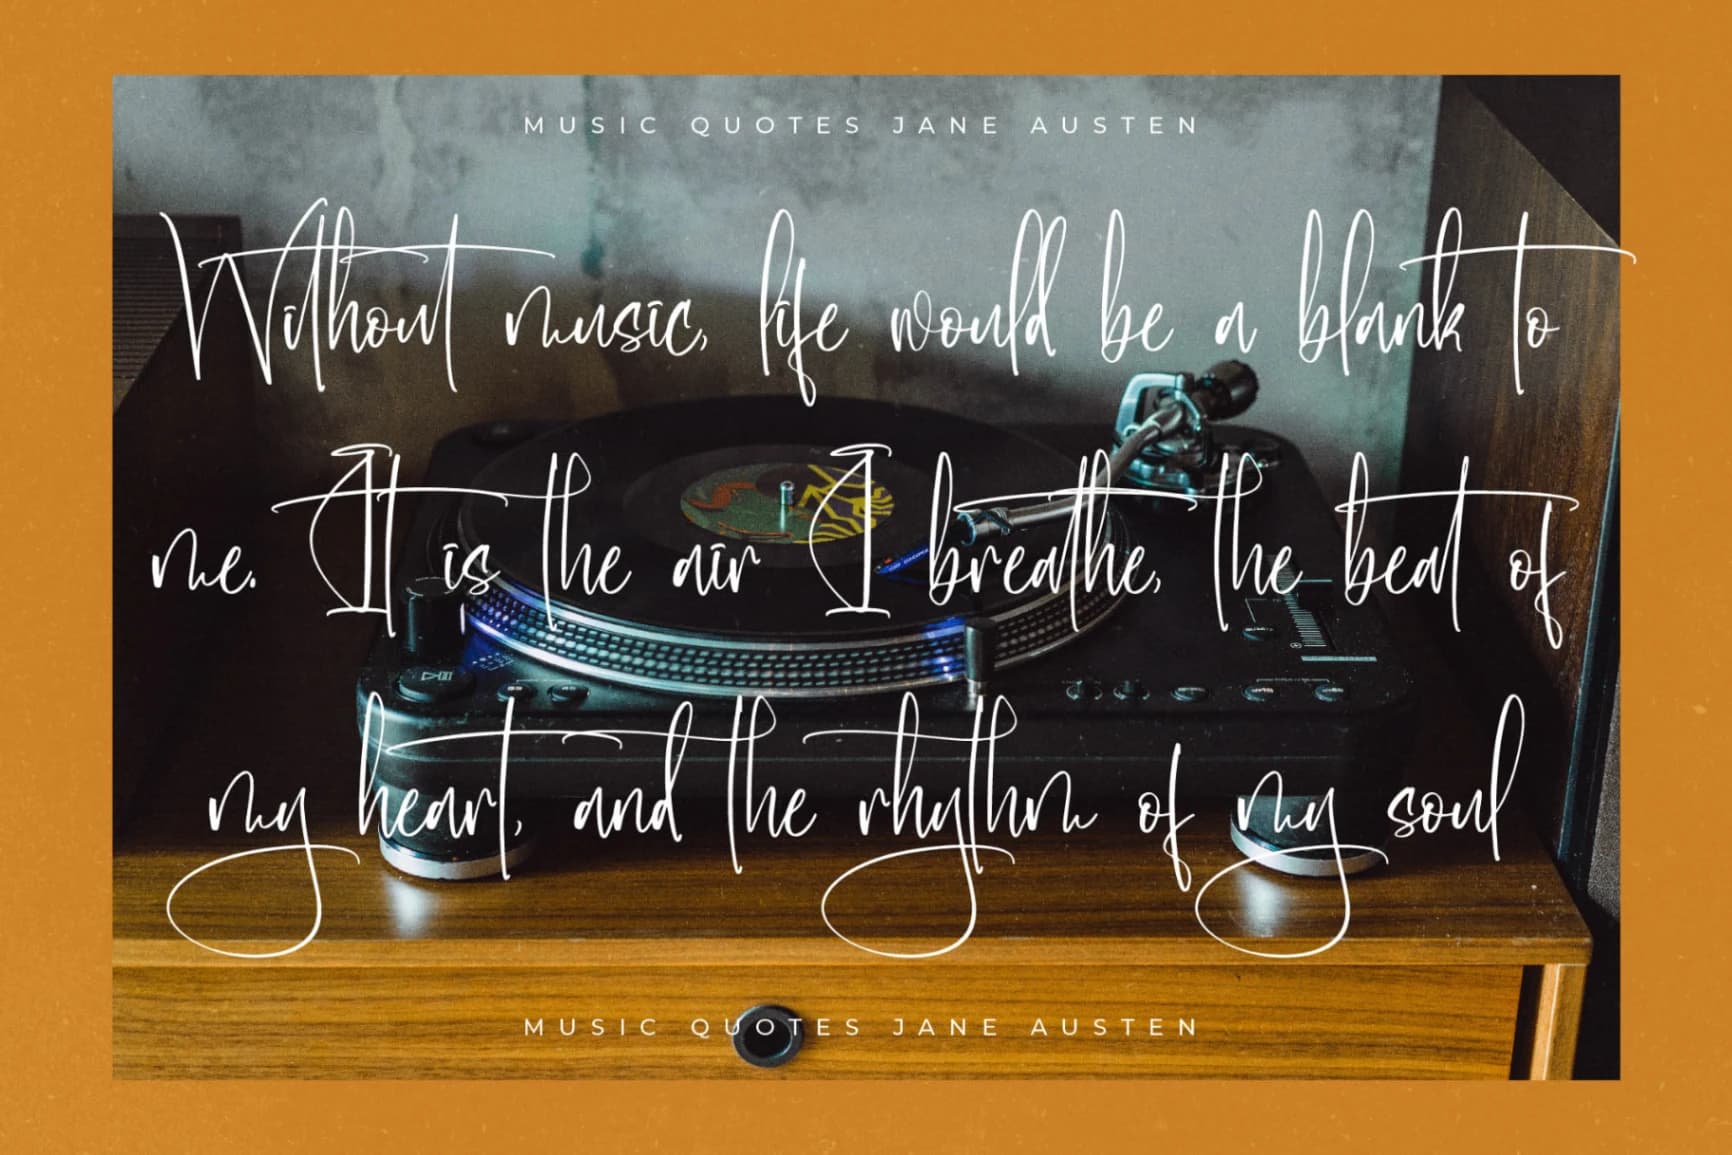 MUSIC QUOTES JANE AUSTEN
Without music, life would be a blank to
me. It is the air I breathe, the beat of
my heart, and the rhythm of my soul
MUSIC QUOTES JANE AUSTEN